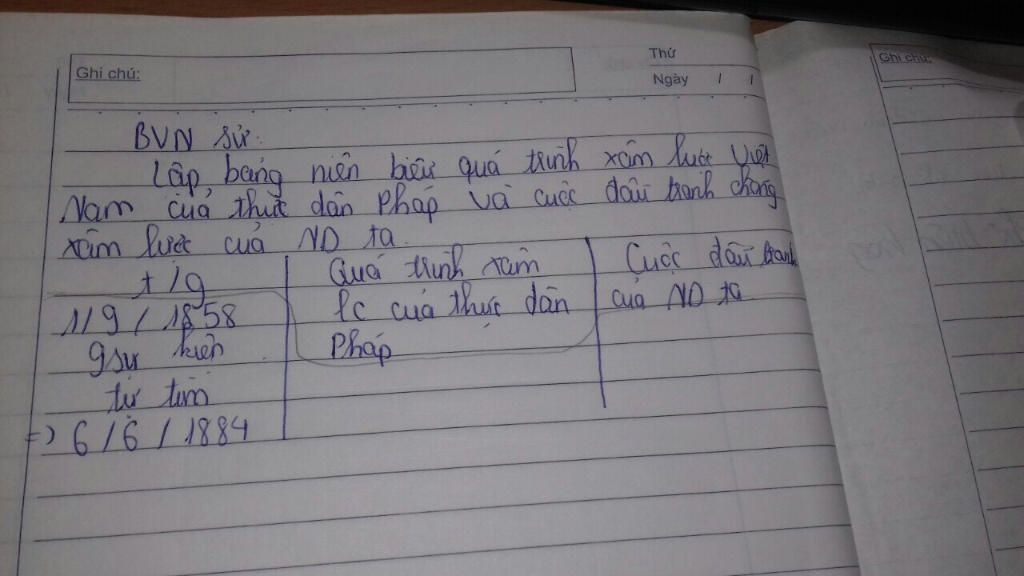 Ghi chú:
Thứ
Ngày / /
Ghi chú:
BVN sử:
Lập bảng niên biểu quá trình xâm lược Việt
Nam của thực dân Pháp và cuộc đấu tranh chống
xâm lược của ND ta.
t/g
Quá trình xâm
lc của thực dân
Pháp
Cuộc đấu tranh
của ND ta
1/9/1858
9 sự kiện
tự tìm
=) 6/6/1884